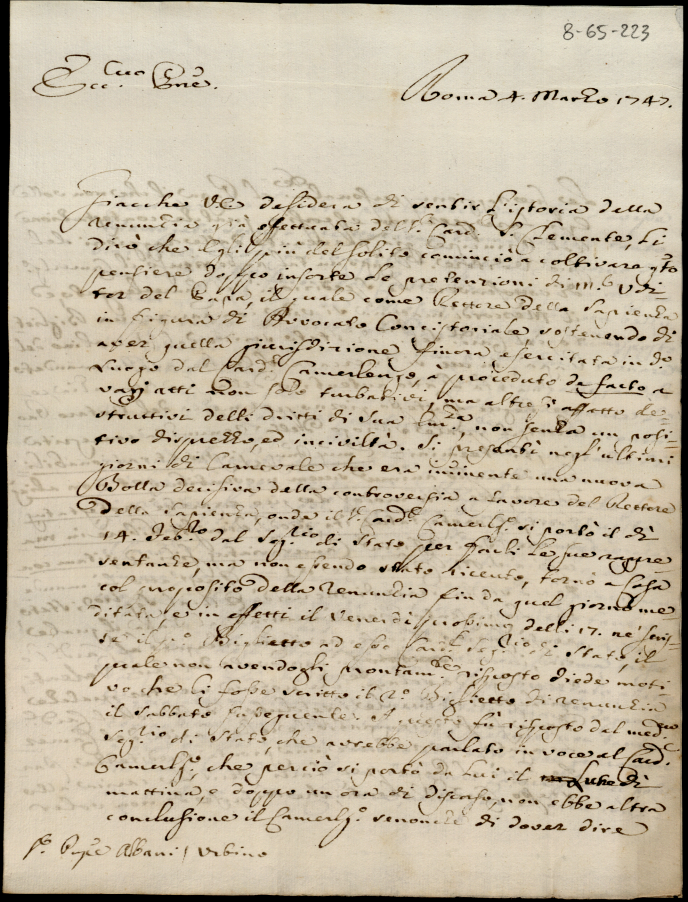 8-65-223
Ecc.mo Sig.re
Roma 4. Marzo 1747.
Giacche V.E. desidera di sentir l'istoria della
renunzia già effettuata dal S.r Card. S. Clemente, Li
dirò che Egli più del solito cominciò a coltivare q.to
pensiere doppo insorte le pretenzioni di M.r Udi-
tor del Papa, il quale come Rettore della Sapienza
in figura di Avvocato Concistoriale sostenendo di
aver quella giurisdizione finora esercitata in d.o
luogo dal Card. Camerlengo, à proceduto de facto a
varj atti non solo turbativi, ma altresì affatto de-
struttivi delli diritti di Sua Em.za, non senza un posi-
tivo disprezzo, ed inciviltà. Si presentì negl'ultimi
giorni di Carnevale che era iminente una nuova
Bolla decisiva della controversia a favore del Rettore
della Sapienza, onde il S.r Card. Camerl.o si portò il dì
14. Feb.ro dal Seg.rio di Stato per farli le sue rappre
sentanze, ma non essendo stato ricevuto, tornò a Casa
col proposito della renunzia fin da quel giorno me-
ditata, e in effetti il Venerdì prossimo delli 17. ne scris-
se il p.o Biglietto ad esso Card. Seg.rio di Stato, il
quale non avendogli prontam.te risposto diede moti-
vo che li fosse scritto il 2.o Biglietto di renunzia
il Sabbato susseguente. A questo fù risposto dal med.mo
Seg.rio di Stato, che avrebbe parlato in voce al Card.
Camerl.o, che perciò si portò da Lui il Lunedì
mattina, e doppo un'ora di discorso, non ebbe altra
conclusione il Camerl.o senonche di dover dire
S.r Pn̄pe Albani / Urbino